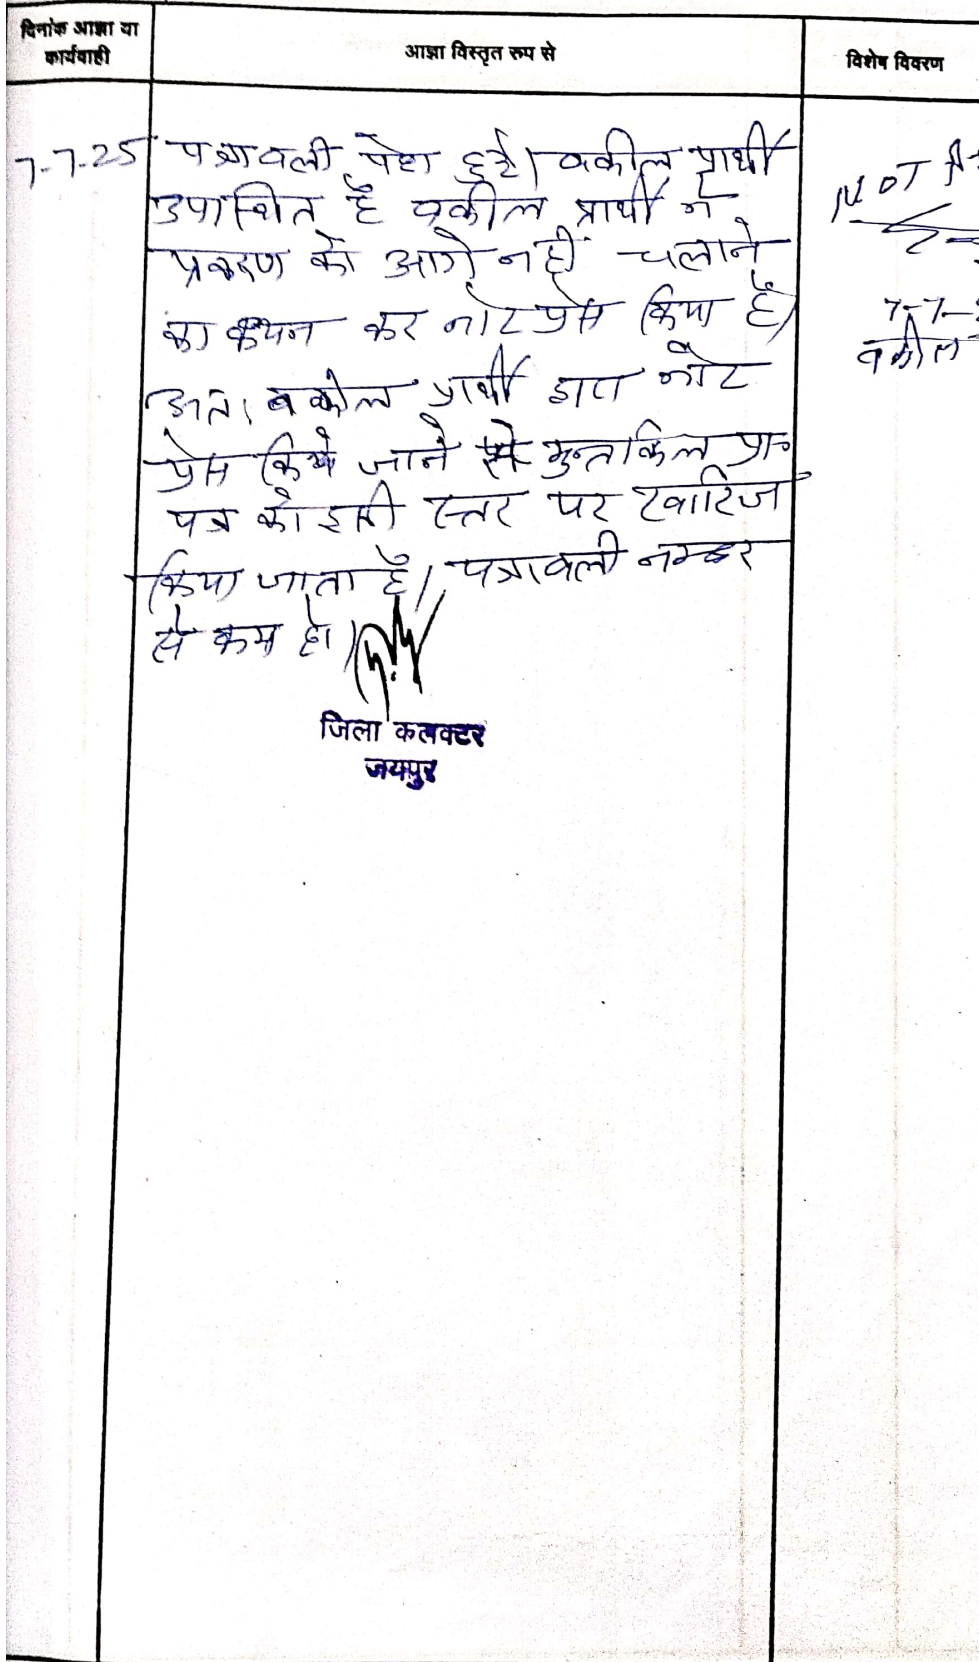 दिनांक आज्ञा या
कार्यवाही
आज्ञा विस्तृत रूप से
विशेष विवरण
7-7-25 पत्रावली पेश हुई। वकील प्रार्थी
उपस्थित है वकील प्रार्थी ने
प्रकरण को आगे नहीं चलाने
का कथन कर नोट प्रेस किया है।
अतः वकील प्रार्थी द्वारा नोट
प्रेस किये जाने से मुन्तकिल प्रा०
पत्र को इसी स्तर पर खारिज
किया जाता है। पत्रावली नम्बर
से कम हो।
जिला कलक्टर
जयपुर
NOT
7-7-
वकील